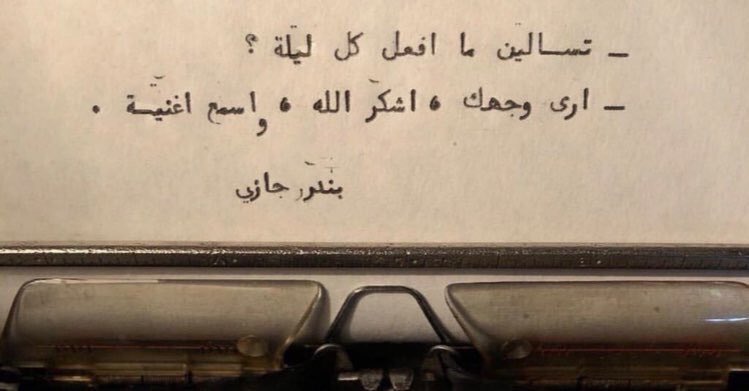 ـ تســالين ما افعل كل ليلة ؟
ـ ارى وجهك ، اشكر الله ، واسمع اغنيـة .
بندر جازي